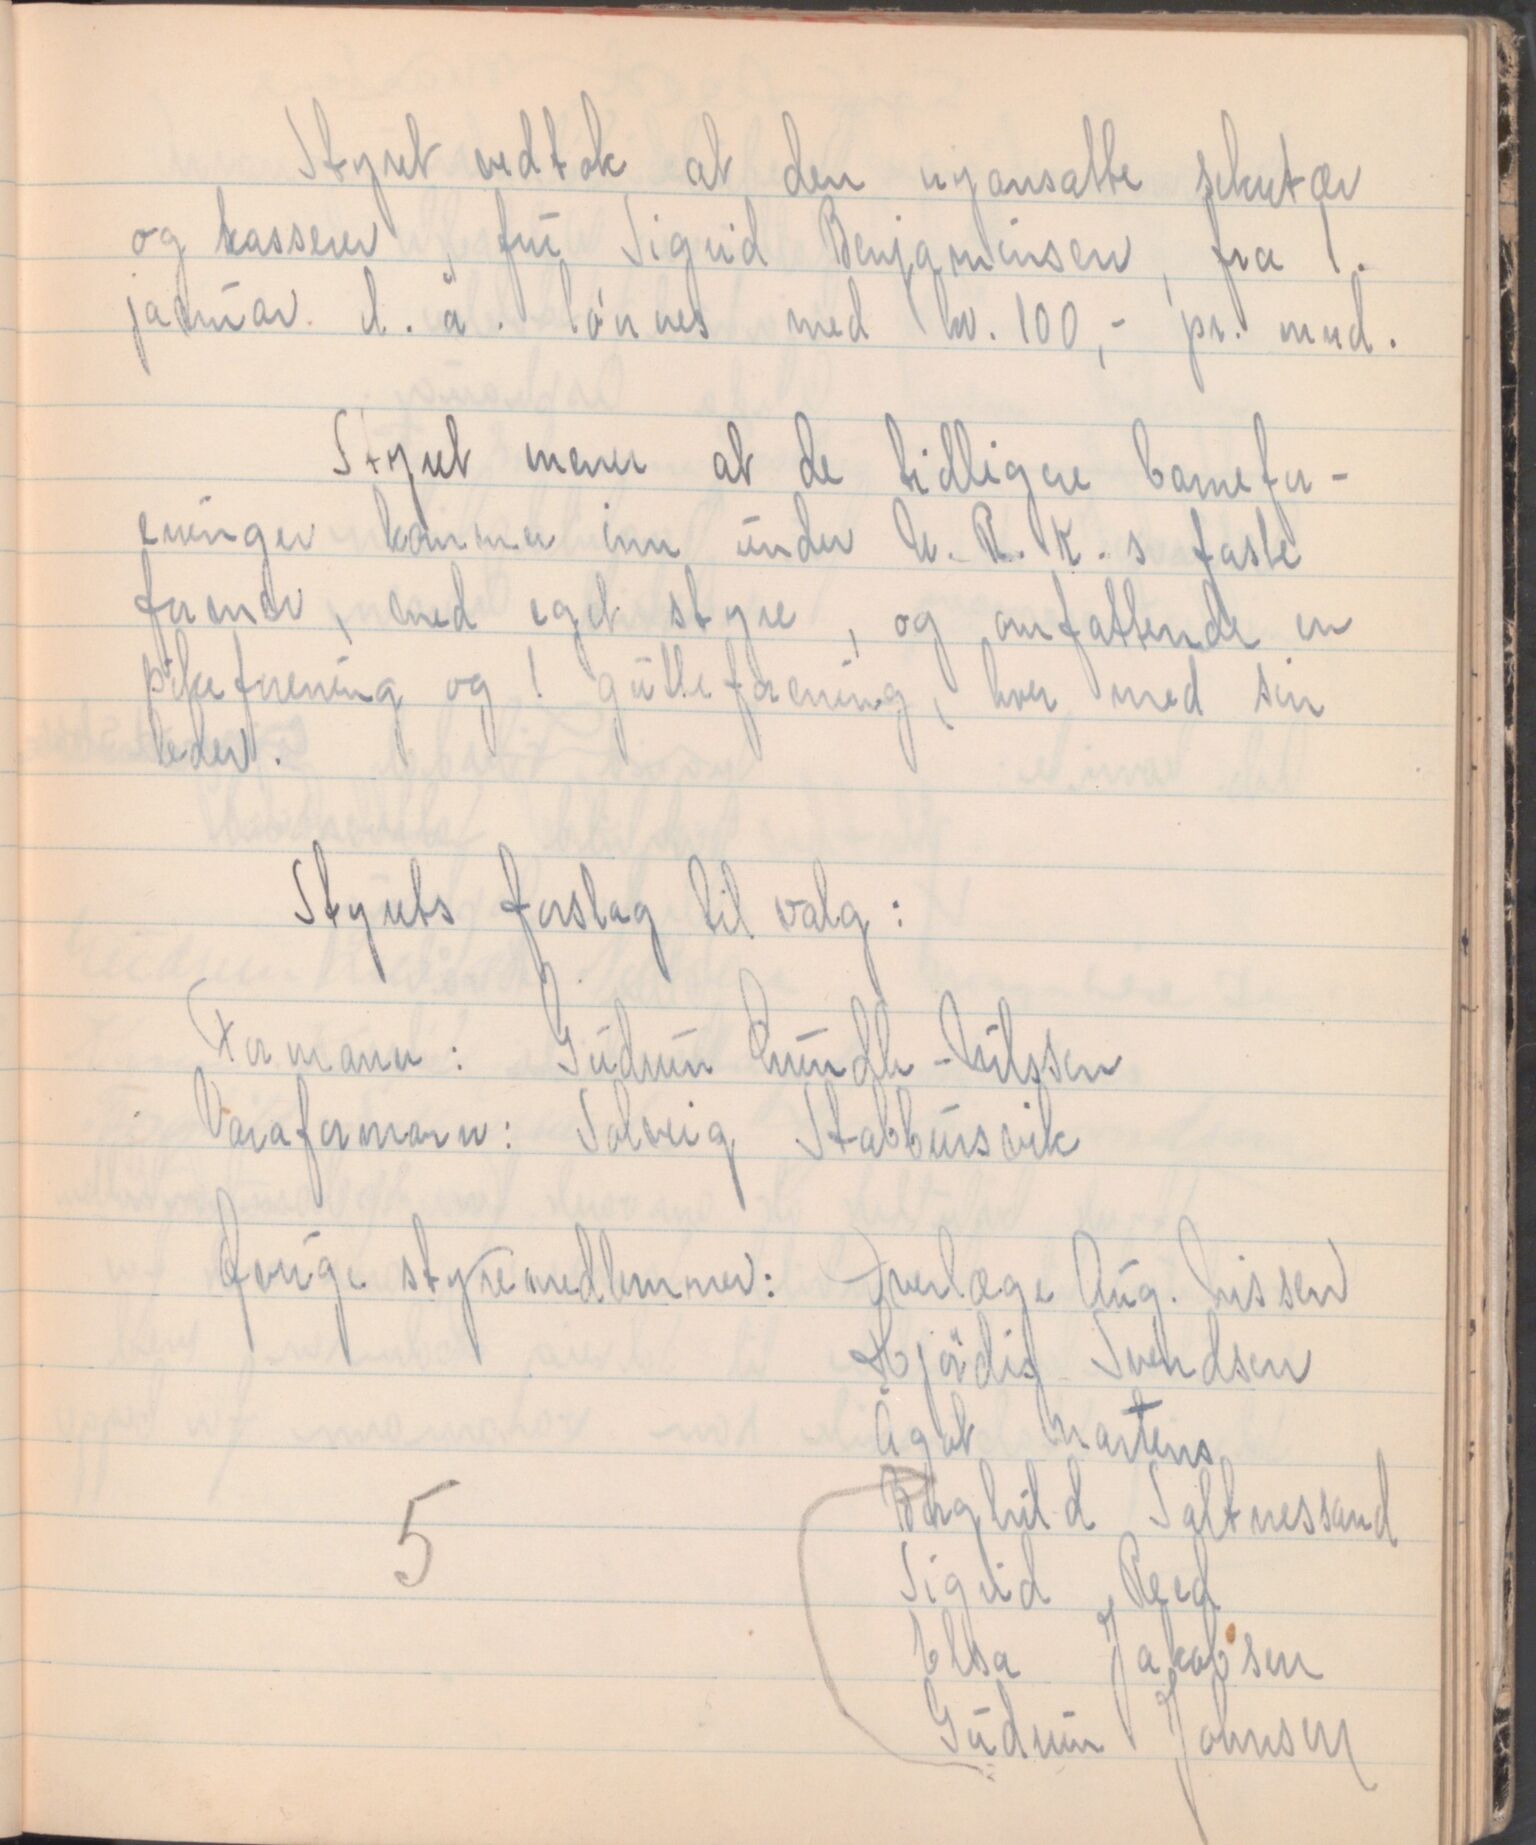 Styret vedtok at den nyansatte sekretær
og kasserer, frü Sigrid Benjaminsen, fra 1.
januar d. å. lönnes med kr. 100,- pr. mnd.
Styret mener at de tidligere barnefor-
eninger kommer inn under N. R. K. s faste
former, med eget styre, og omfattende en
pikeforening og 1 gutteforening, hver med sin
leder.
Styrets forslag til valg:
Formann: Gudrun Rundle-Nilssen
Varaformann: Solveig Stabbursvik
Øvrige styremedlemmer: Overlæge Aug. Nissen
Hjördis Svendsen
Ågot Martens
Borghild Saltnessand
Sigrid Reed
5
Elsa Jakobsen
Gudrun Johnsen